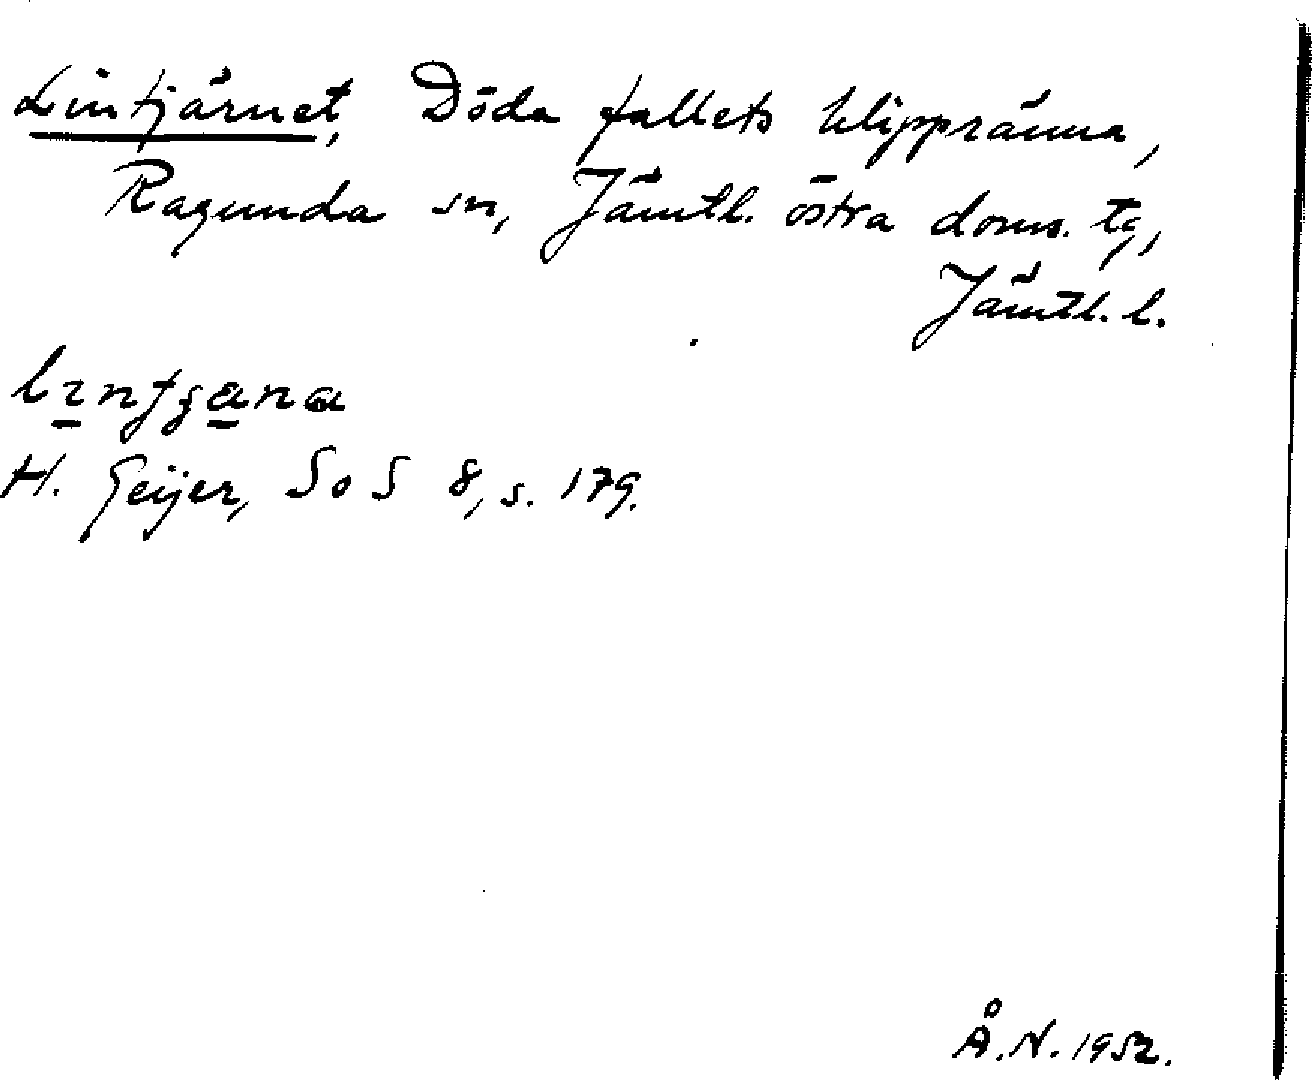 Lintjärnet, Döda fallets klippränna,
Ragunda sn, Jämtl. östra doms. tg,
Jämtl. l.
H. Geijer, SoS 8, s. 179.
Å.N. 1952.